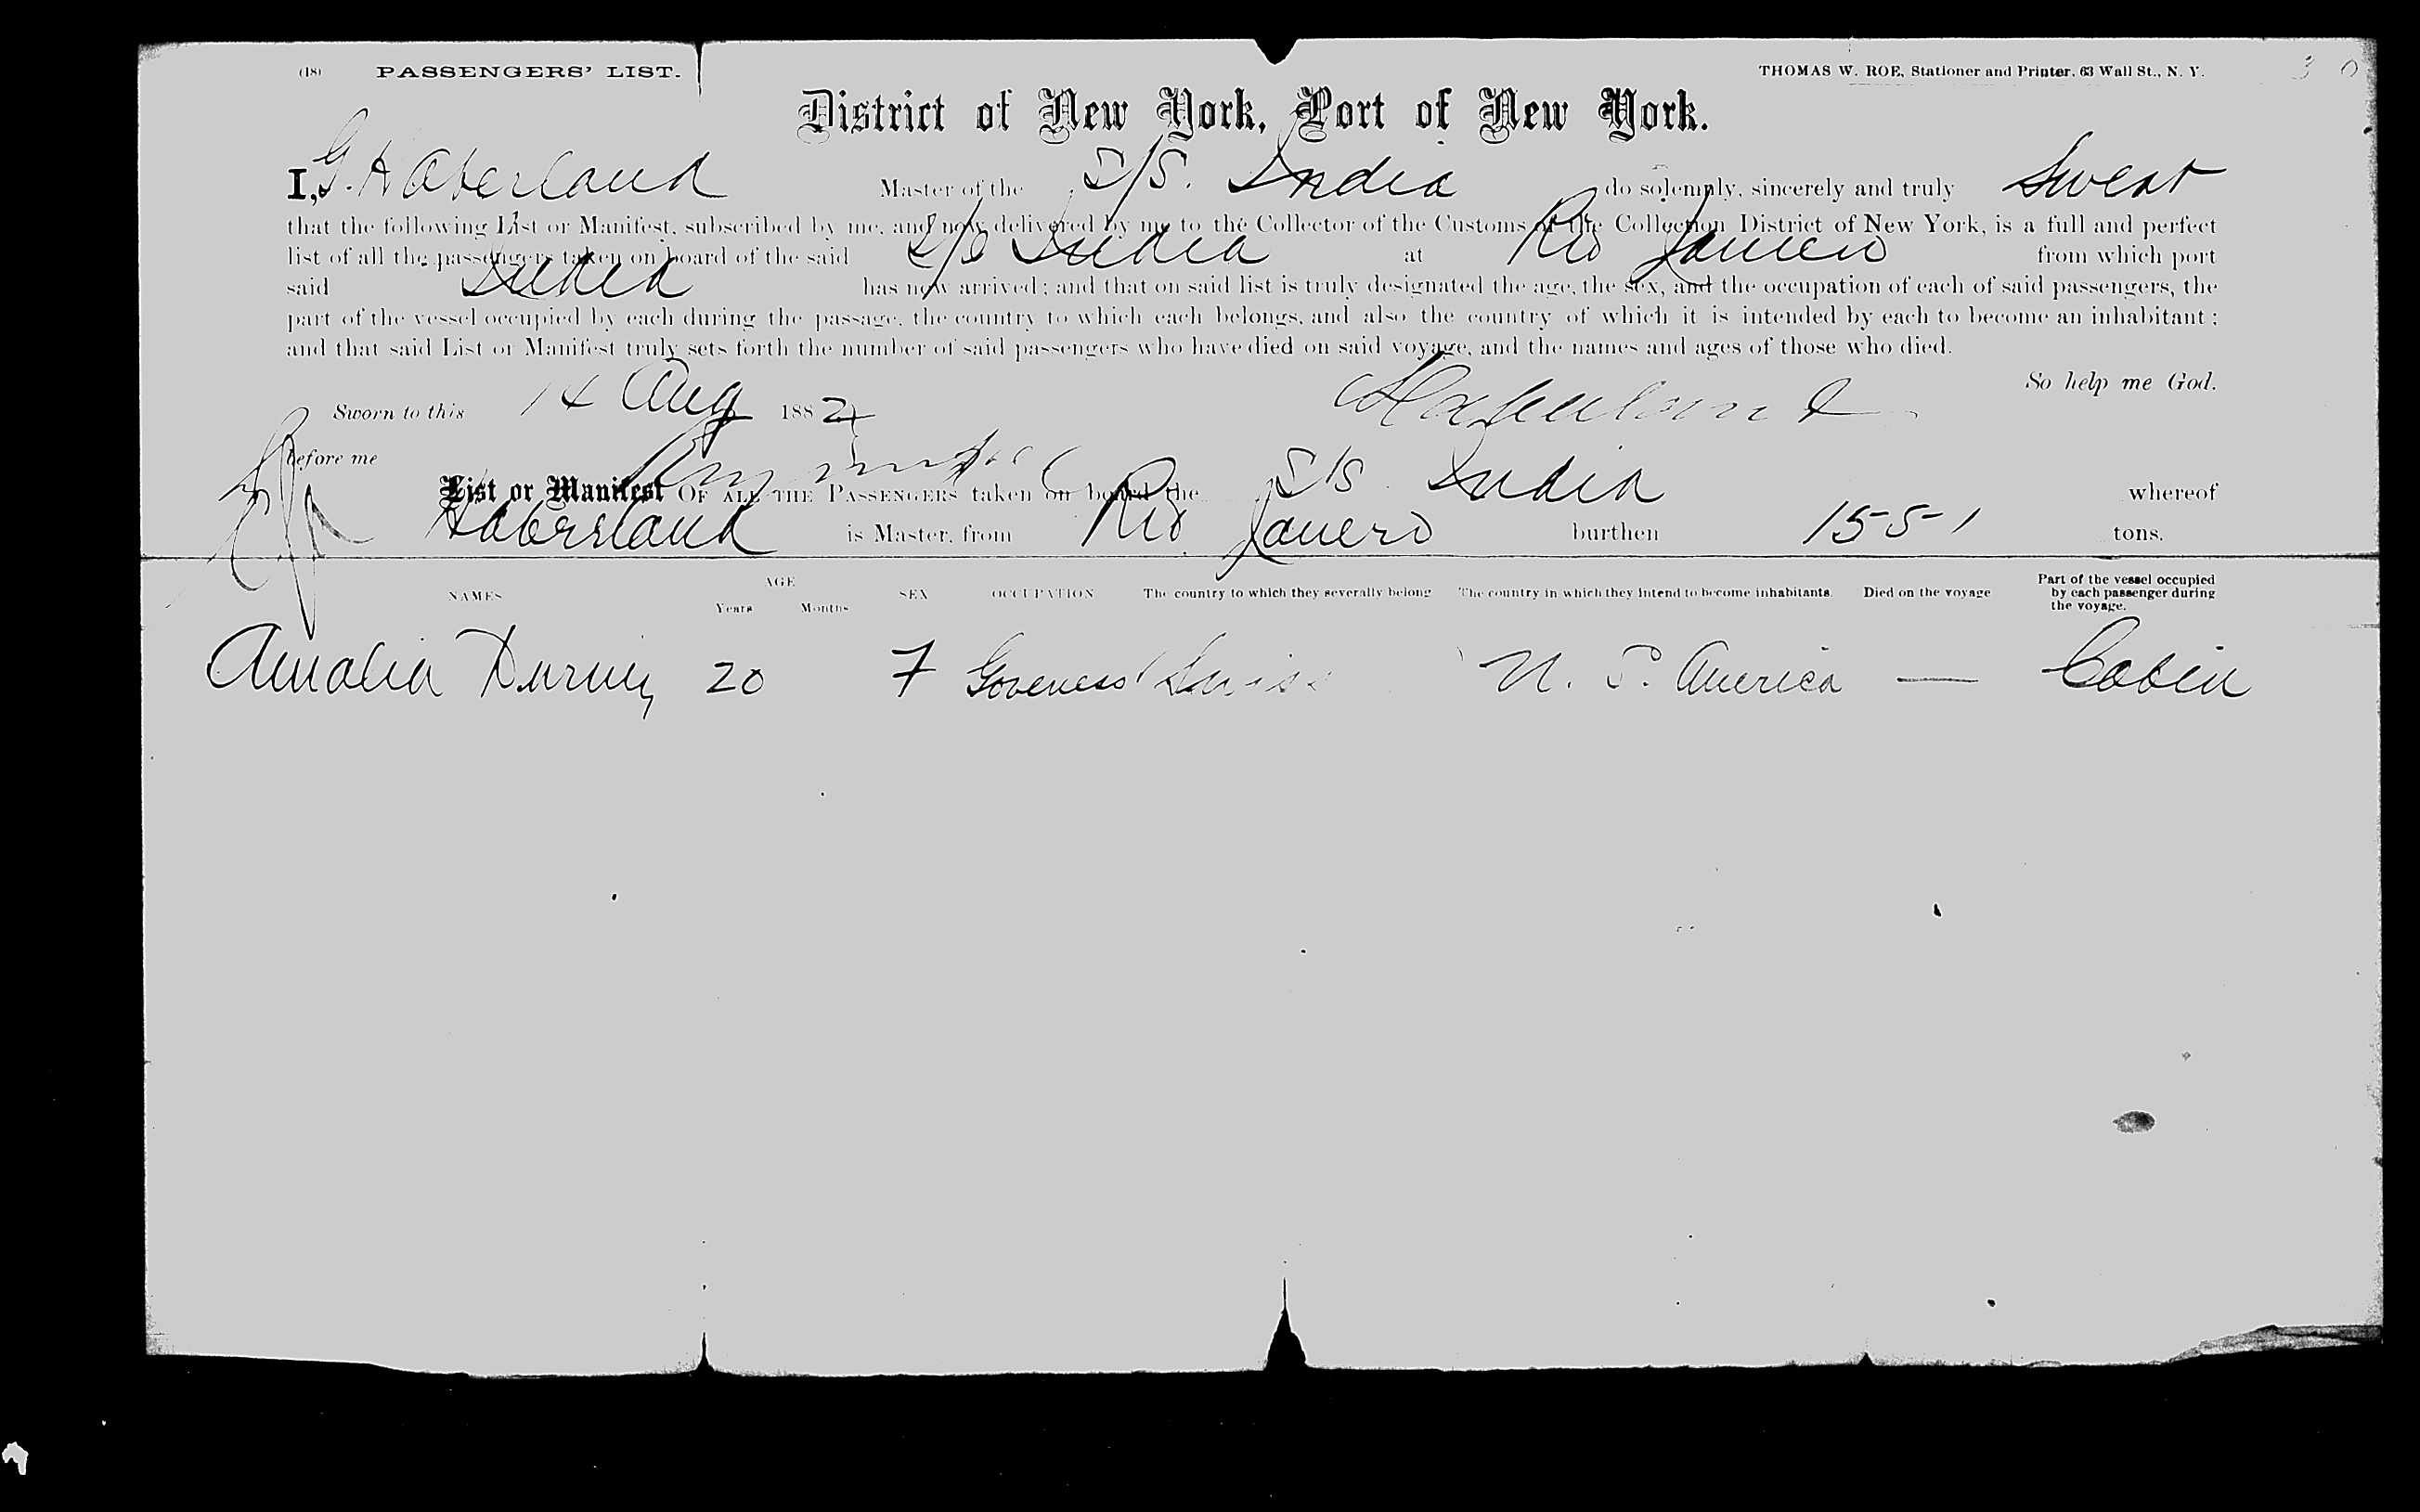 (18) PASSENGERS' LIST. THOMAS W. ROE, Stationer and Printer, 63 Wall St., N. Y. 30
District of New York, Port of New York.
I, G. Haberland Master of the S/S. India do solemnly, sincerely and truly Swear
that the following List or Manifest, subscribed by me, and now delivered by me to the Collector of the Customs of the Collection District of New York, is a full and perfect
list of all the passengers taken on board of the said S/S India at Rio Janeiro from which port
said India has now arrived; and that on said list is truly designated the age, the sex, and the occupation of each of said passengers, the
part of the vessel occupied by each during the passage, the country to which each belongs, and also the country of which it is intended by each to become an inhabitant;
and that said List or Manifest truly sets forth the number of said passengers who have died on said voyage, and the names and ages of those who died.
So help me God.
Sworn to this 14 Aug 1882 Haberland
before me
List or Manifest OF ALL THE PASSENGERS taken on board the S/S India whereof
Haberland is Master, from Rio Janero burthen 1551 tons.
NAMES AGE Years Months SEX OCCUPATION The country to which they severally belong The country in which they intend to become inhabitants. Died on the voyage Part of the vessel occupied by each passenger during the voyage.
Amalia 20 F Goveness Swiss U. S. America — Cabin